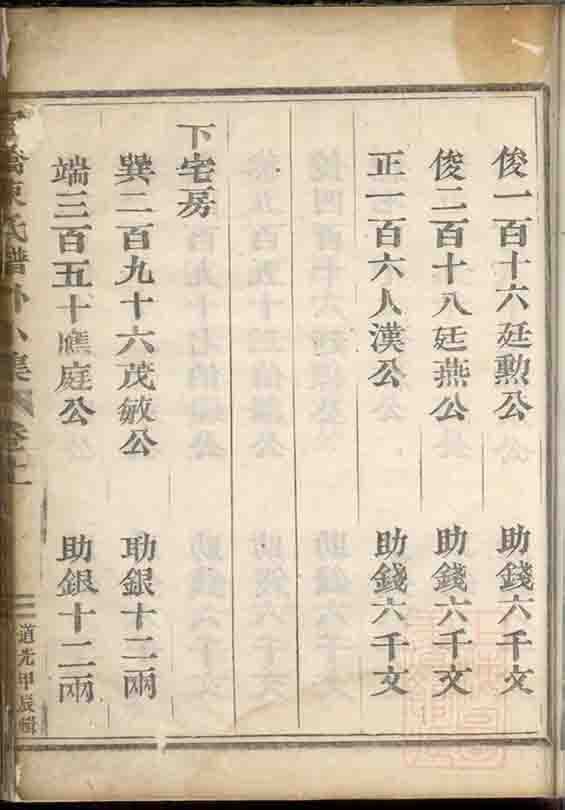 俊一百十六廷勲公　助錢六千文
俊二百十八廷燕公　助錢六千文
正一百六人漢公　助錢六千文
下宅房
巽二百九十六茂敏公　助銀十二兩
端三百五十應庭公　助銀十二兩
氏譜外 集 卷上
道光甲辰輯